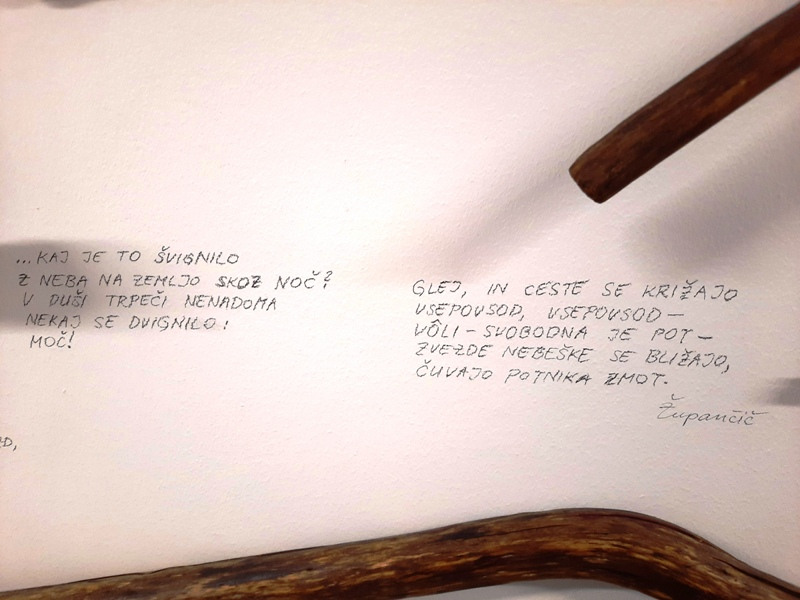 ...KAJ JE TO ŠVIGNILO
Z NEBA NA ZEMLJO SKOZ NOČ?
V DUŠI TRPEČI NENADOMA
NEKAJ SE DVIGNILO:
MOČ!
GLEJ, IN CESTE SE KRIŽAJO
VSEPOVSOD, VSEPOVSOD—
VÔLI-SVOBODNA JE POT—
ZVEZDE NEBEŠKE SE BLIŽAJO,
ČUVAJO POTNIKA ZMOT.
Župančič